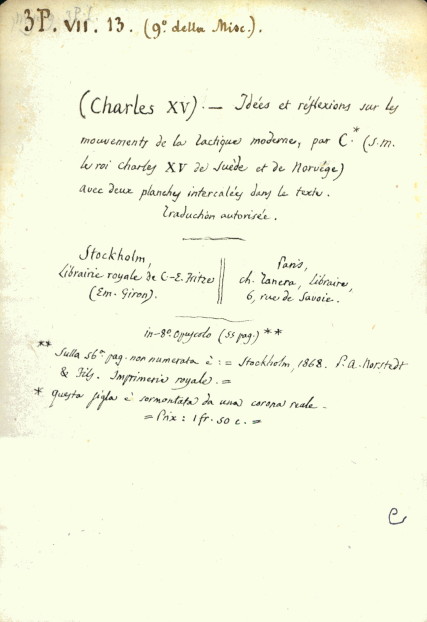 3P. VII. 13. (9º della Misc.).
(Charles XV). — Idées et réflexions sur les
mouvements de la tactique moderne, par C.* (S. M.
le roi Charles XV de Suède et de Norvége)
avec deux planches intercalées dans le texte.
Traduction autorisée.
Stockholm,
Librairie royale de C.-E. Fritze
(Em. Giron).
Paris,
ch. Tanera, Libraire,
6, rue de Savoie.
in-8º. Opuscolo (55 pag.) **
** Sulla 56ª pag. non numerata è: = Stockholm, 1868. P. A. Norstedt
& Fils. Imprimerie royale. =
* questa sigla è sormontata da una corona reale.
= Prix: 1 fr. 50 c. =
C